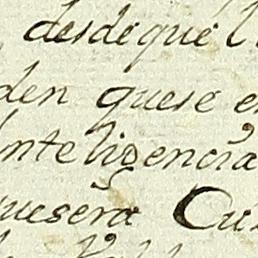 desde qué l
den quese e
Inteligencia
quesera Cu